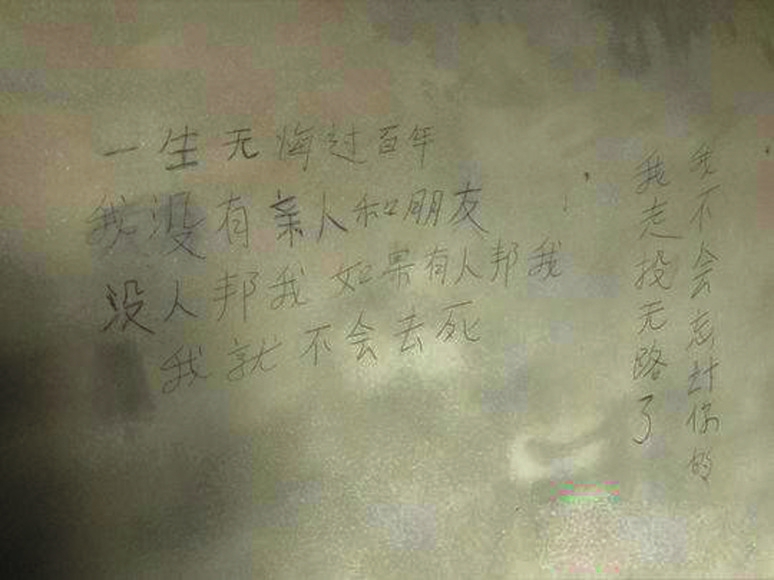 一生无悔过百年
我没有亲人和朋友
没人邦我如果有人邦我
我就不会去死
我不会忘计你的
我走投无路了